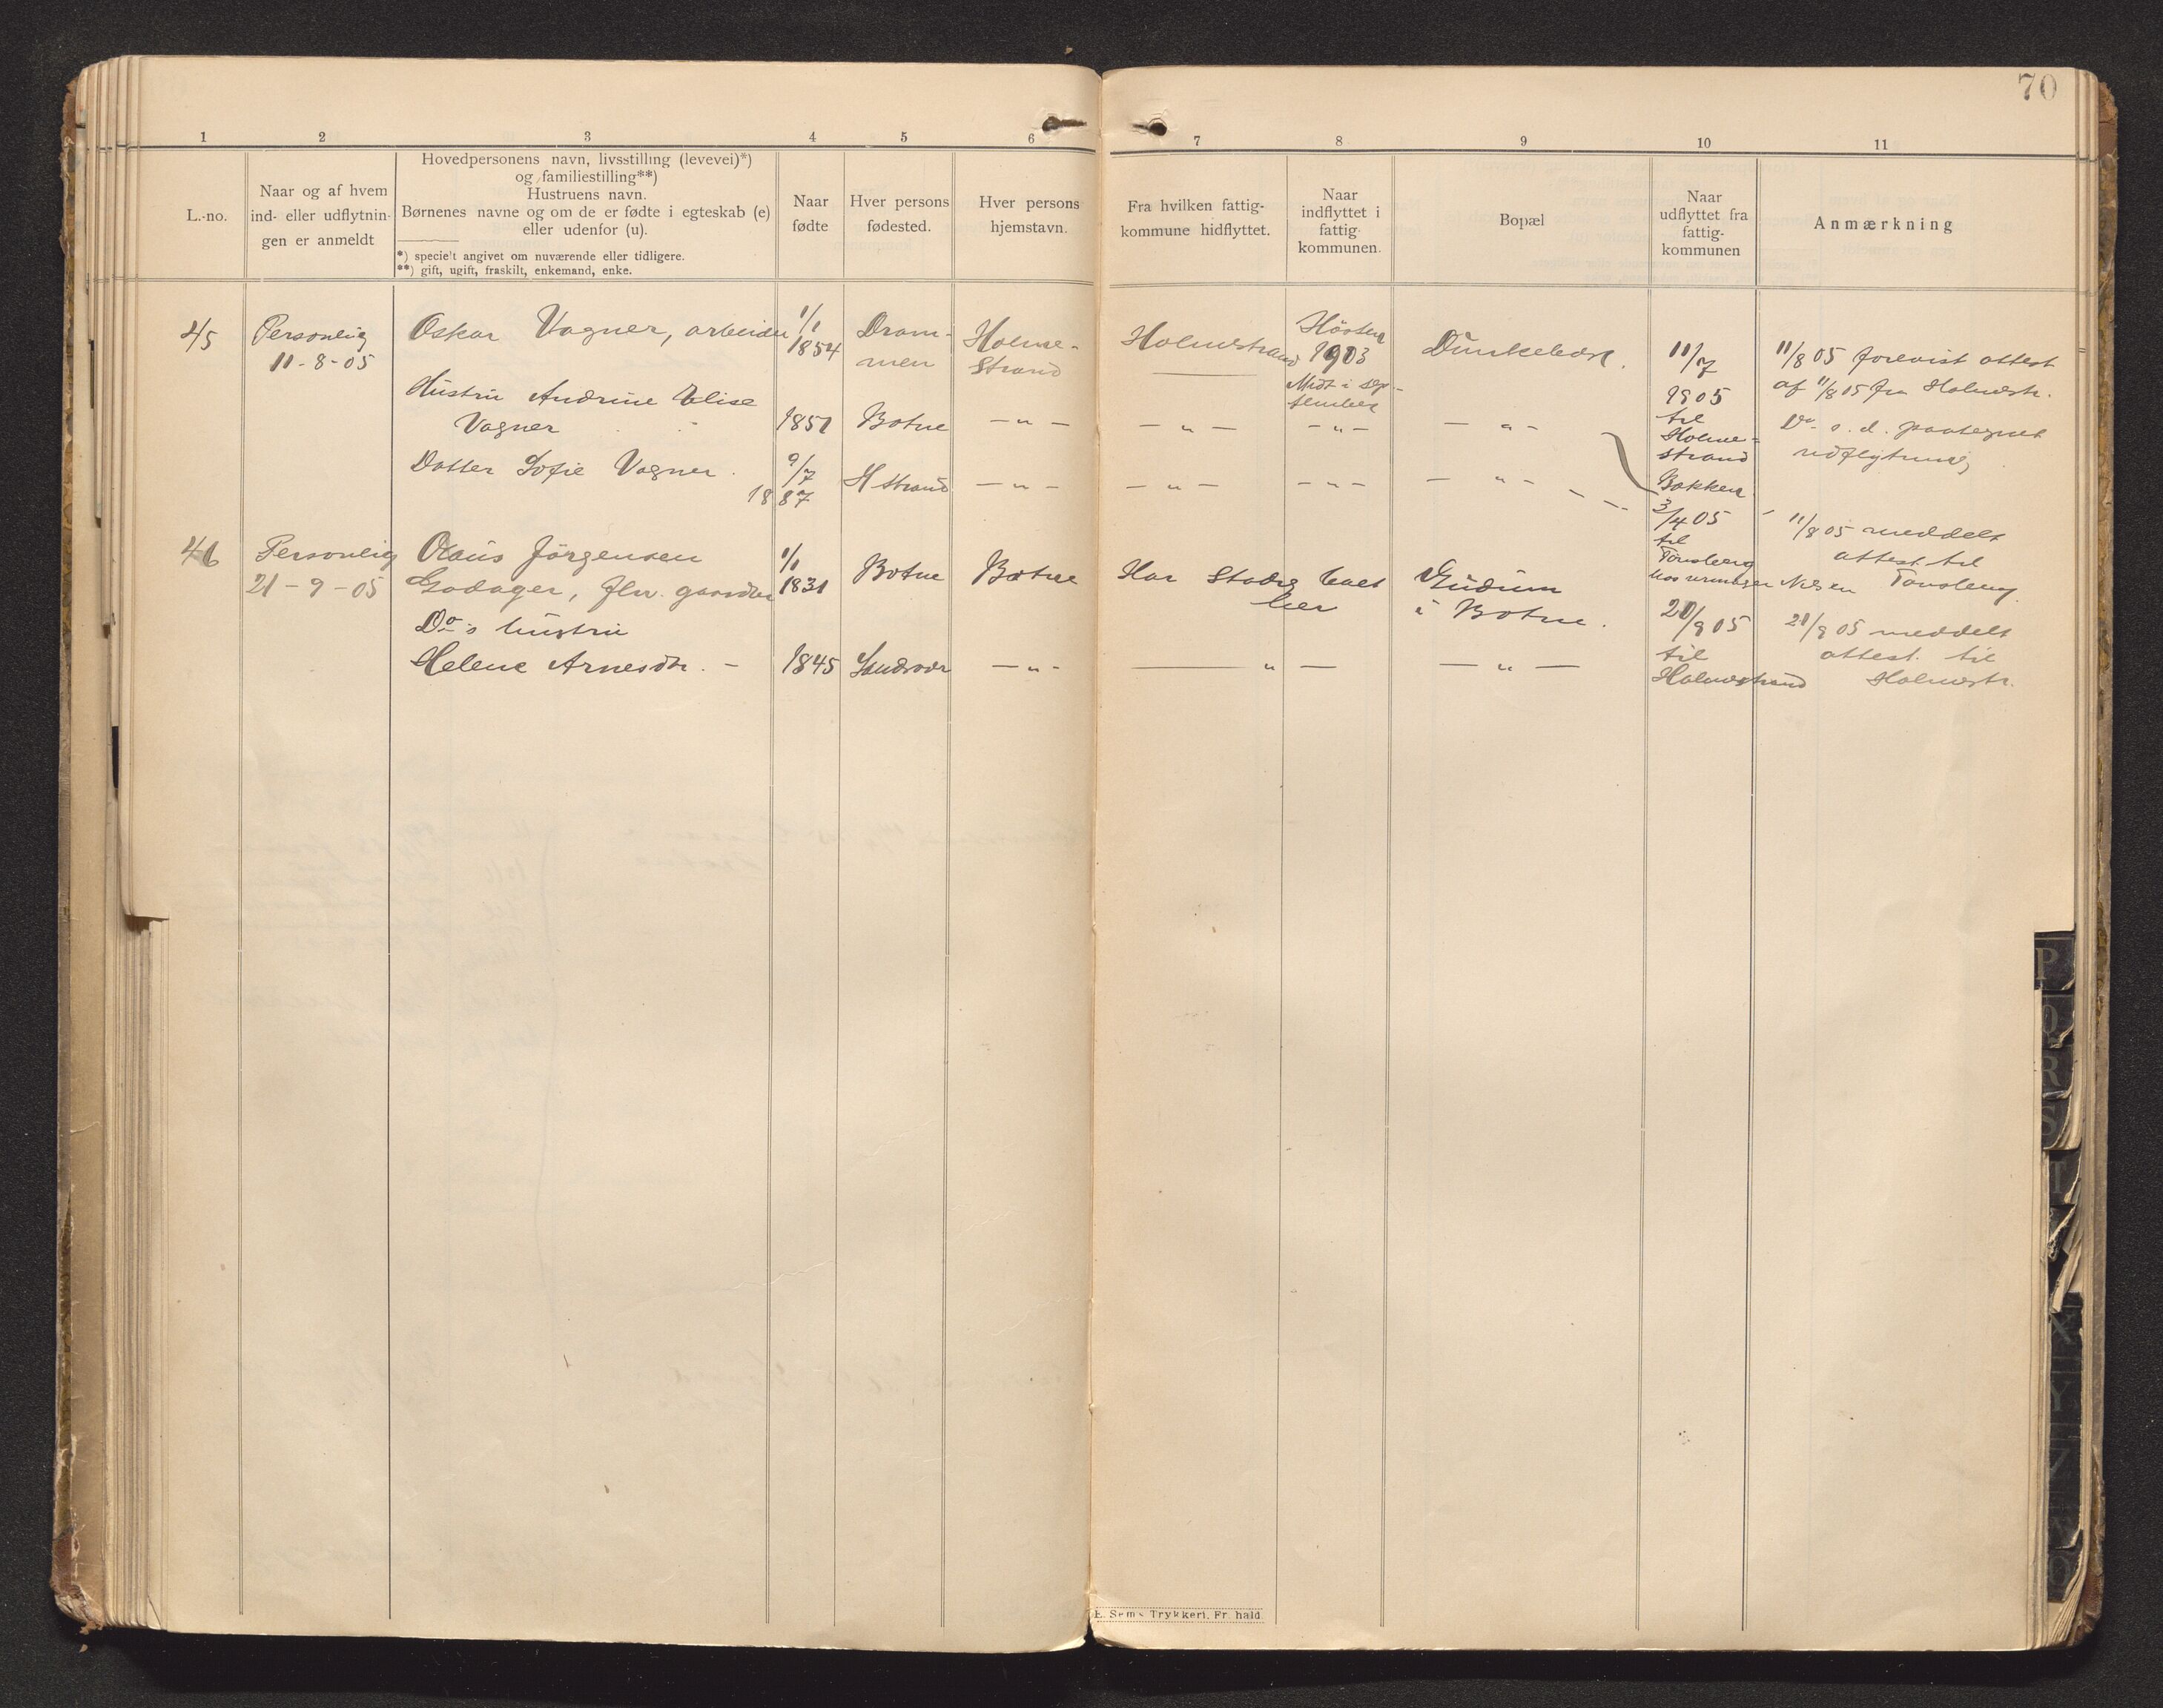 70
1 2 3 4 5 6 7 8 9 10 11
L.-no.
Naar og af hvem
ind- eller udflytnin-
gen er anmeldt
Hovedpersonens navn, livsstilling (levevei)*)
og familiestilling**)
Hustruens navn.
Børnenes navne og om de er fødte i egteskab (e)
eller udenfor (u).
*) specielt angivet om nuværende eller tidligere.
**) gift, ugift, fraskilt, enkemand, enke.
Naar
fødte
Hver persons
fødested.
Hver persons
hjemstavn.
Fra hvilken fattig-
kommune hidflyttet.
Naar
indflyttet i
fattig-
kommunen.
Bopæl
Naar
udflyttet fra
fattig-
kommunen
Anmærkning
45
Personlig
11-8-05
Oskar Vagner, arbeider
1/1
1854
Dram-
men
Holme-
strand
Holmestrand
Høsten
1903
Midt i sep-
tember
11/7
1905
til
Holme-
strand
11/8 05 forevist attest
af 11/8 05 fra Holmestr.
Do s. d. paategnet
udflytning
Hustru Andrine Elise
Vagner
1851
Botne
— " —
— " —
— " —
— " —
Datter Sofie Vagner.
9/7
1887
H strand
— " —
— " —
— " —
— " —
Bakken
3/4 05
til
Tønsberg
hos urmager Nilsen
11/8 05 meddelt
attest til
Tønsberg.
46
Personlig
21-9-05
Olaus Jörgensen
Gadager, fhv. gaardbr
1/1
1831
Botne
Botne
Har stadig boet
her
Gudum
i Botne.
20/9 05
til
Holmestrand
21/9 05 meddelt
attest til
Holmestr.
Do's hustru
Helene Arnesdtr. —
1845
Sandsvær
— " —
— " —
— " —
E. Sem's Trykkeri, Fr.hald.
P
Q
R
S
T
X
Y
Z
Æ
Ø